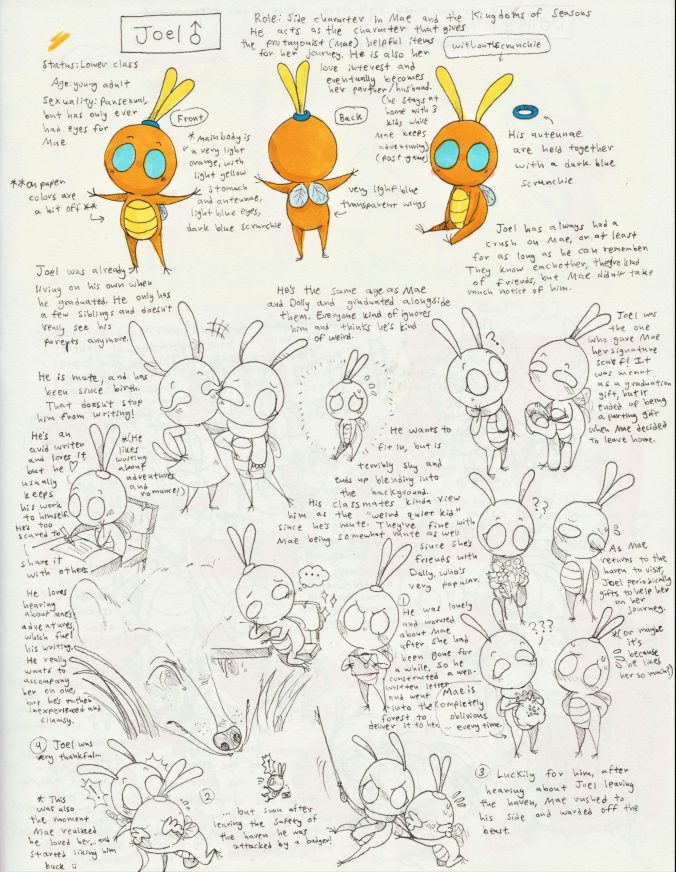 Joel ♂
Role: Side character in Mae and the Kingdoms of Seasons
He acts as the character that gives
the protagonist (Mae) helpful items
for her journey. He is also her
love interest and
eventually becomes
her partner/husband.
(he stays at
home with 3
kids while
Mae keeps
adventuring)
(post game)
without scrunchie
Status: Lower class
Age: young adult
Sexuality: Pansexual,
but has only ever
had eyes for
Mae
Front
Back
**on paper
colors are
a bit off**
*main body is
a very light
orange, with
light yellow
stomach
and antennae,
light blue eyes,
dark blue scrunchie
very light blue
transparent wings
His antennae
are held together
with a dark blue
scrunchie
Joel has always had a
crush on Mae, or at least
for as long as he can remember.
They know eachother, they're kind
of friends, but Mae didn't take
much notice of him.
Joel was already
living on his own when
he graduated. He only has
a few siblings and doesn't
really see his
parents anymore.
He's the same age as Mae
and Dolly and graduated alongside
them. Everyone kind of ignores
him and thinks he's kind
of weird.
Joel was
the one
who gave Mae
her signature
scarf! It
was meant
as a graduation
gift, but it
ended up being
a parting gift
when Mae decided
to leave home.
He is mute, and has
been since birth.
That doesn't stop
him from writing!
He's an
avid writer
and loves it
but he ♡
usually
keeps
his work
to himself.
He's too
scared to
share it
with others
*(He
likes
writing
about
adventures
and
romance!)
He wants to
fit in, but is
terribly shy and
ends up blending into
the background.
His classmates kinda view
him as the "weird quiet kid"
since he's mute. They're fine with
Mae being somewhat mute as well
since she's
friends with
Dolly, who's
very popular.
?
??
As Mae
returns to the
haven to visit,
Joel periodically
gifts to help her
on her
journey.
*(or maybe
it's
because
he likes
her so much!)
He loves
hearing
about Mae's
adventures,
which fuel
his writing.
He really
wants to
accompany
her on one,
but he's rather
inexperienced and
clumsy.
...
①
He was lonely
and worried
about Mae
after she had
been gone for
a while, so he
constructed a well-
written letter
and went
into the
forest to
deliver it to her
???
Mae is
completely
oblivious
... every time.
②
... but soon after
leaving the safety of
the haven he was
attacked by a badger!
③ Luckily for him, after
hearing about Joel leaving
the haven, Mae rushed to
his side and warded off the
beast.
④ Joel was
very thankful...
* This
was also
the moment
Mae realized
he loved her... and
started liking him
back :)